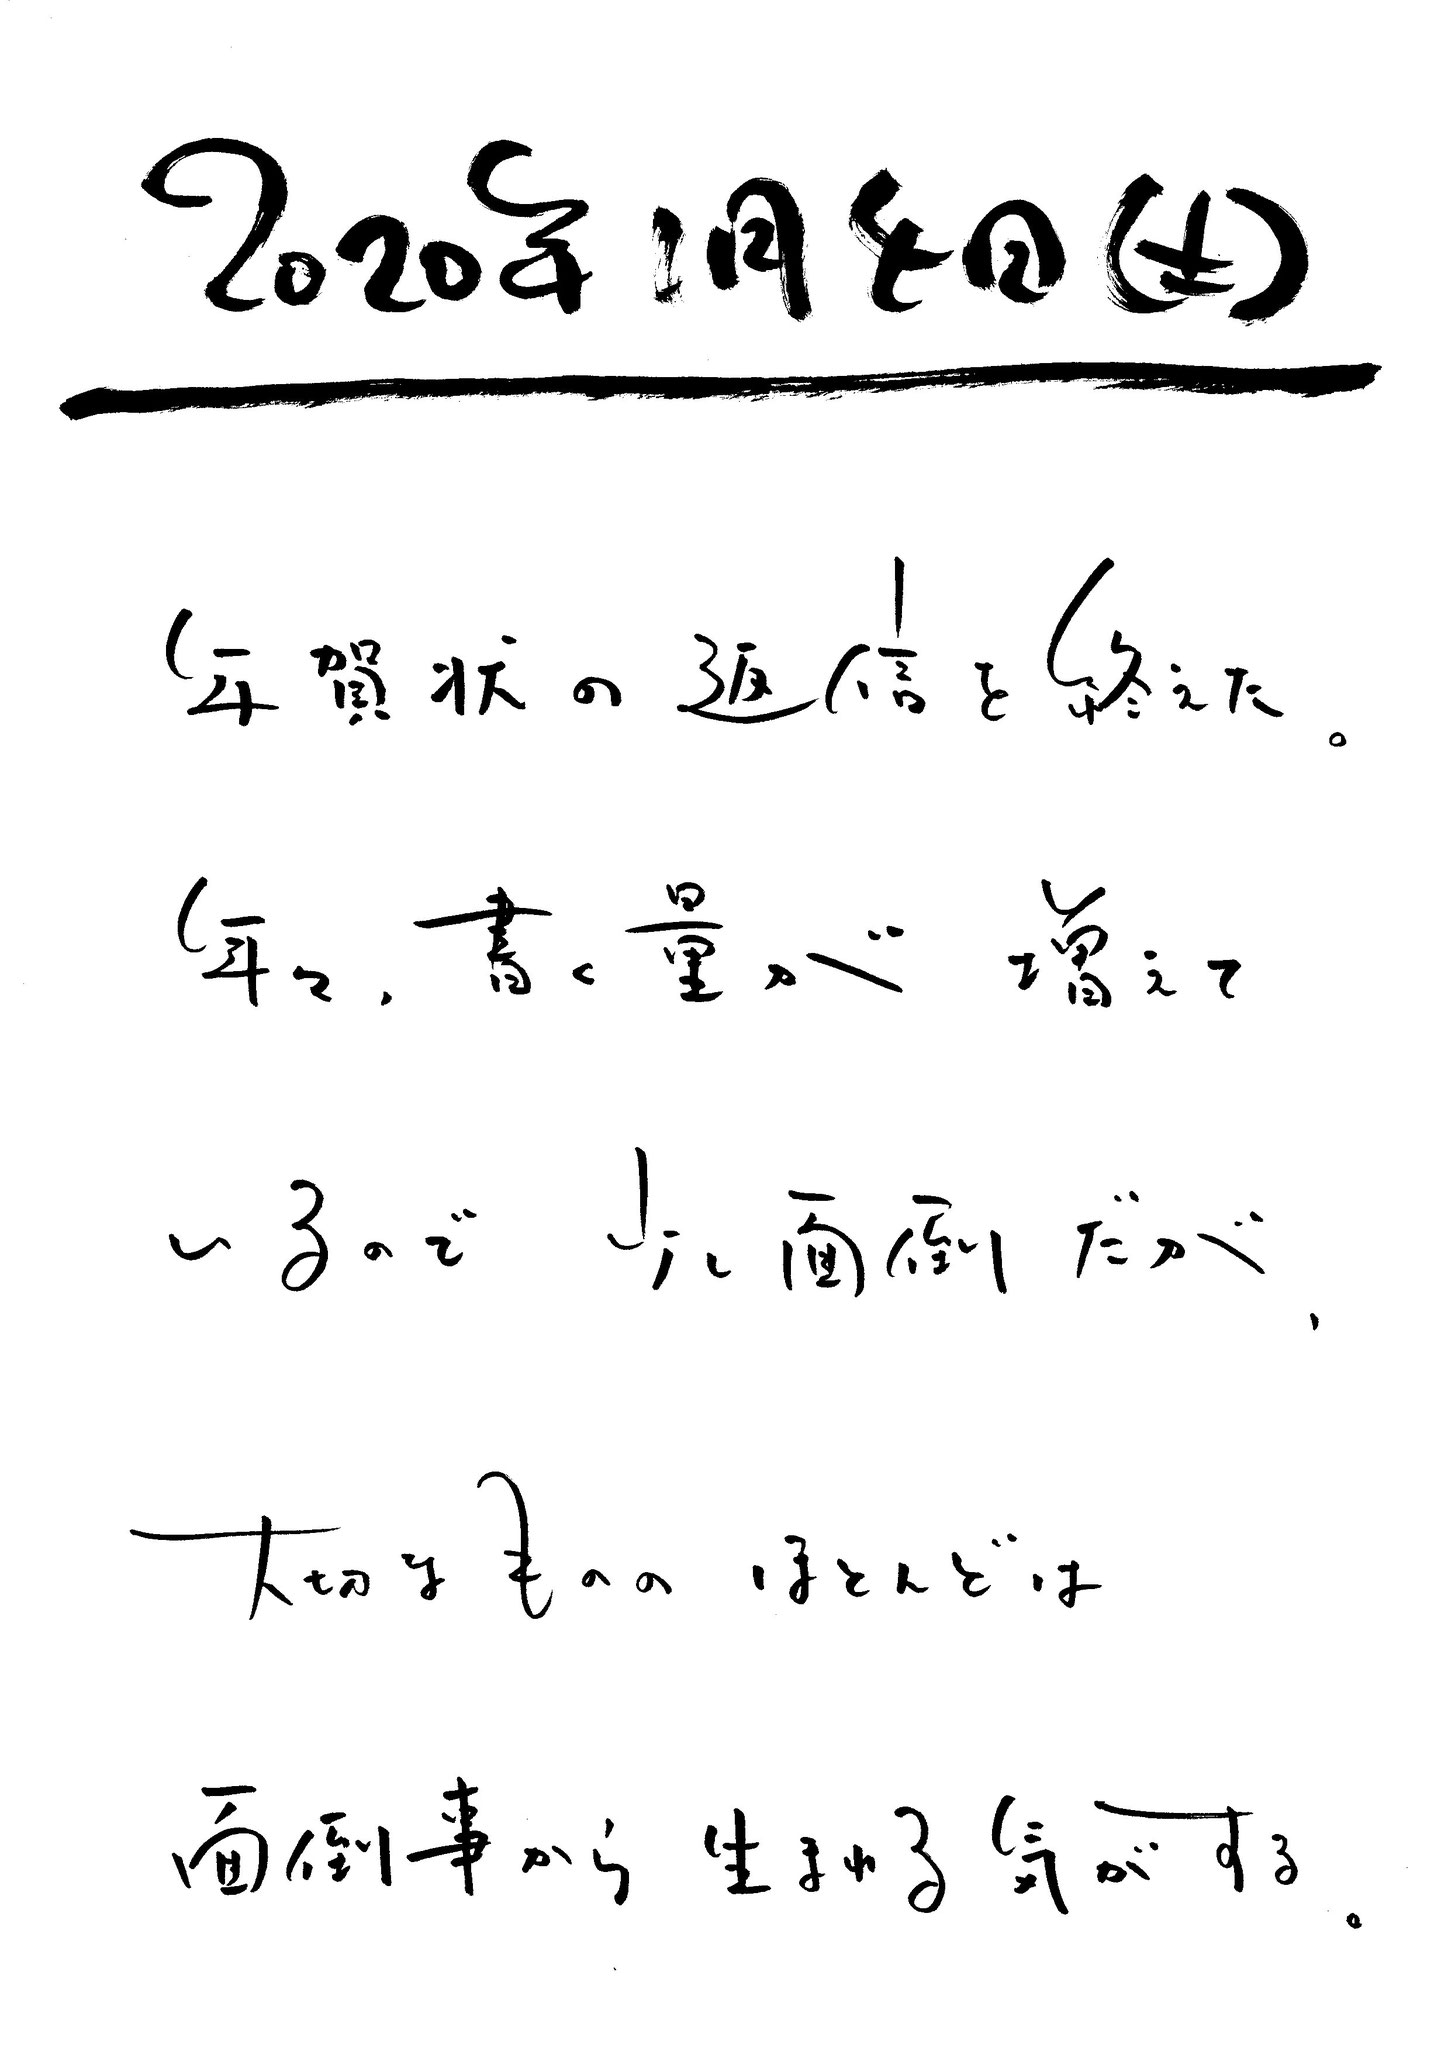 2020年1月4日(土)
年賀状の返信を終えた。
年々、書く量が増えて
いるので少し面倒だが、
大切なもののほとんどは
面倒事から生まれる気がする。